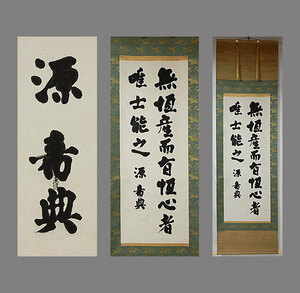 源
希典
無恒産而有恒心者
唯士能之 源希典
無恒産而有恒心者
唯士能之 源希典